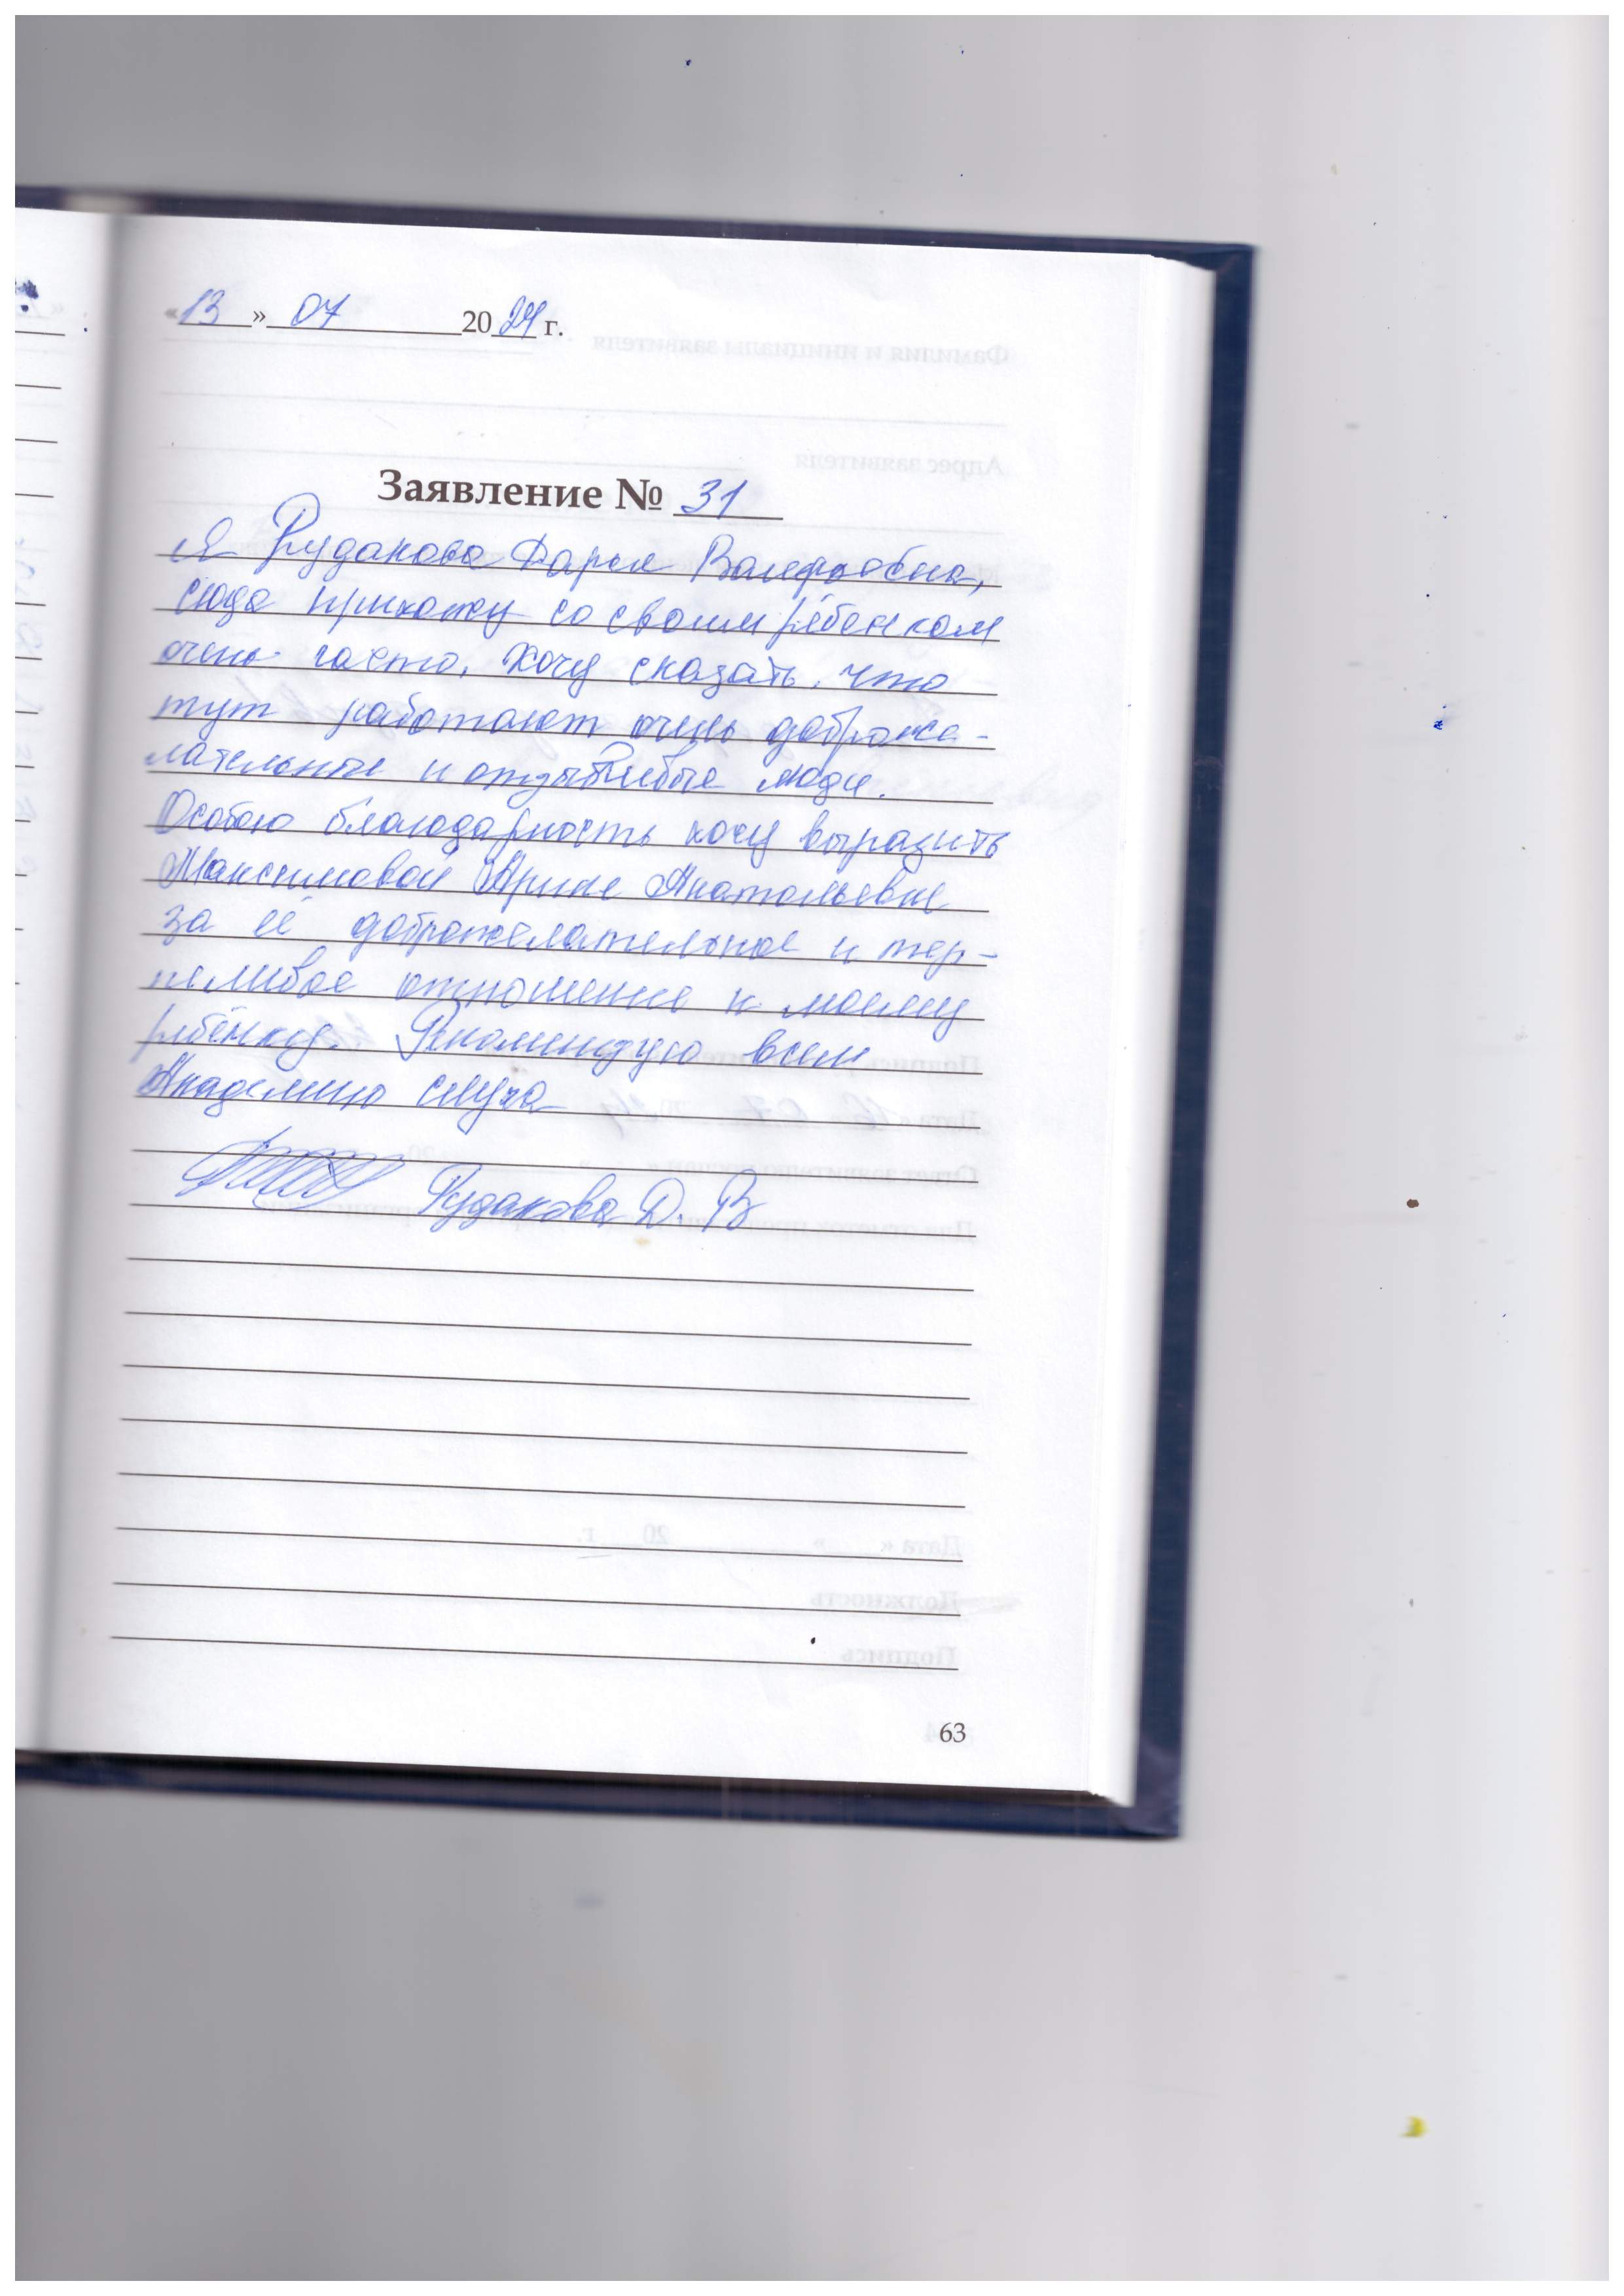 «13» 07 2024 г.
Заявление № 31
Я Рудакова Дарья Валерьевна,
сюда прихожу со своим ребенком
очень часто, хочу сказать, что
тут работают очень доброже-
лательные и отзывчивые люди.
Особою благодарность хочу выразить
Максимовой Арине Анатольевне
за её доброжелательное и тер-
пеливое отношение к моему
ребёнку. Рекомендую всем
Академию слуха
Рудакова Д. В
63